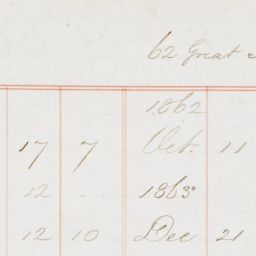 62 Great
1862
17 7 Oct. 11
12 1863
12 10 Dec 21